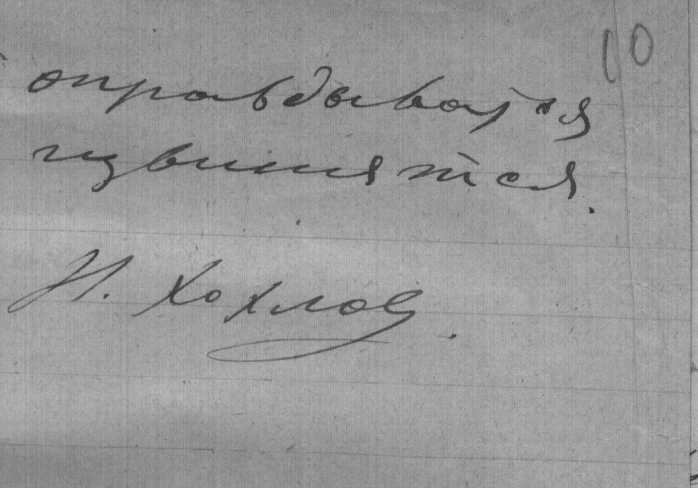 10
оправдываться
извиняться.
Н. Хохлов.